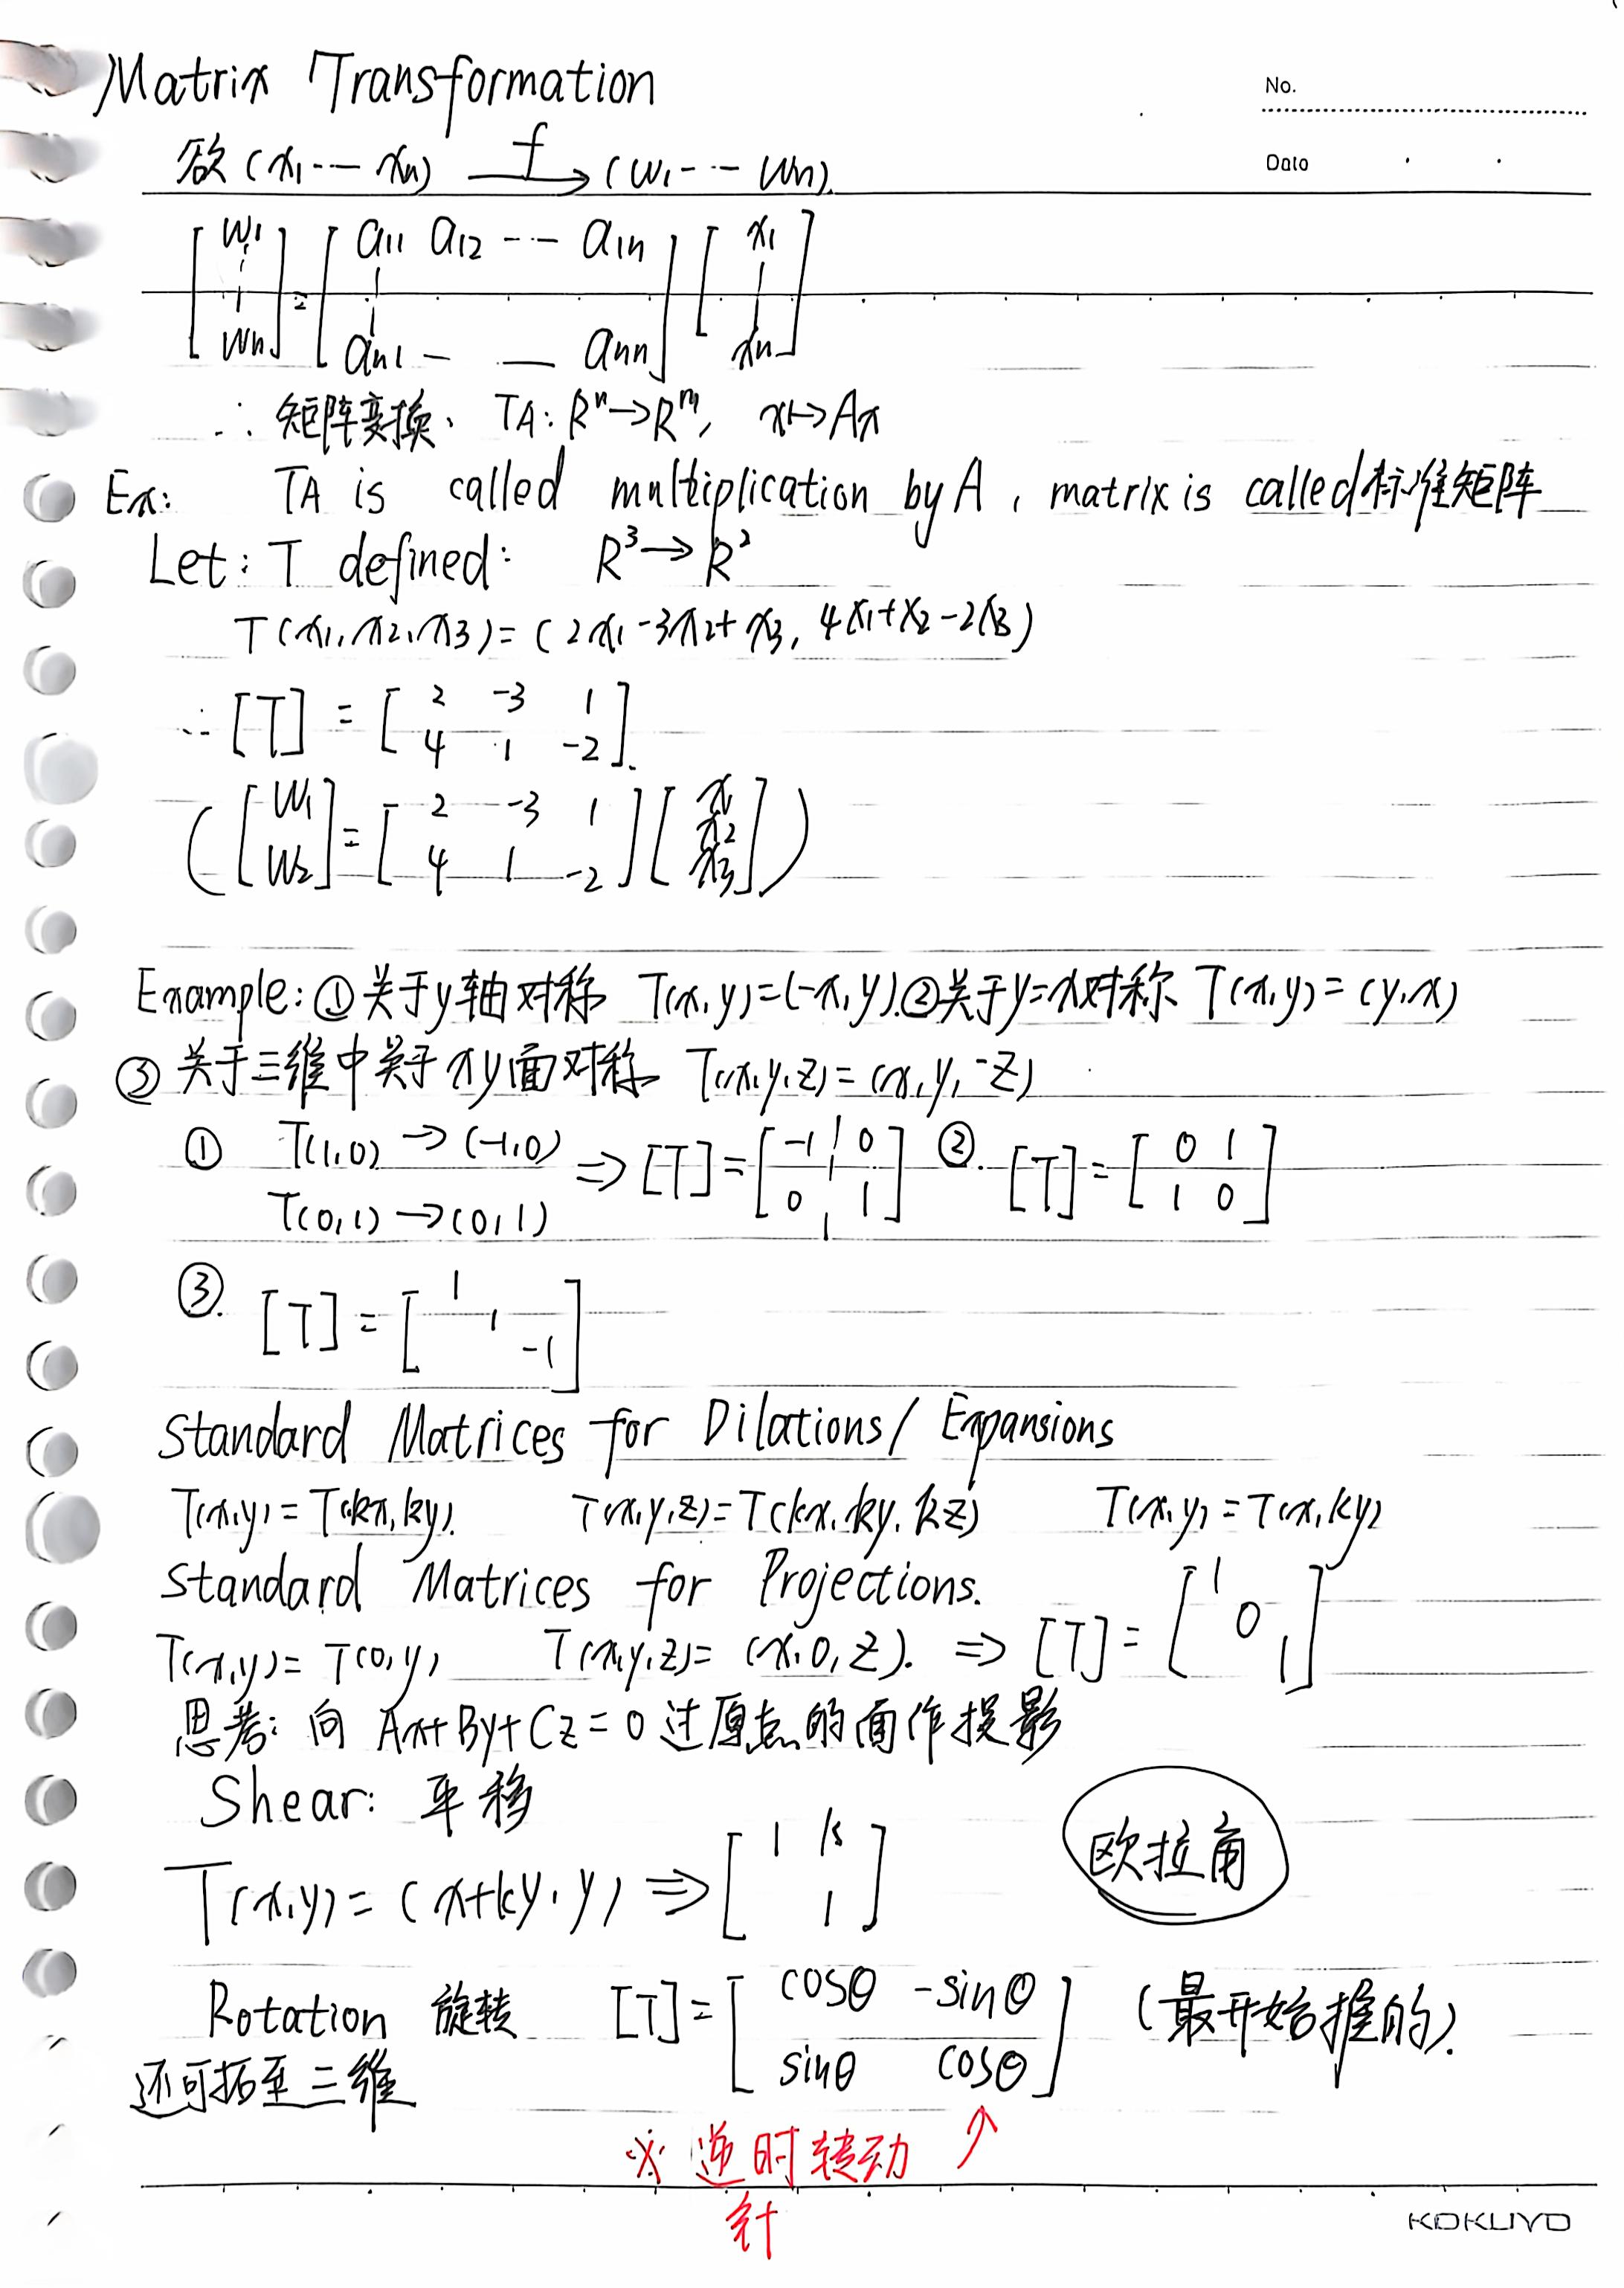 Matrix Transformation
No.
Date
欲(x₁---xₙ) →f (w₁---wₙ).
[w₁ ⋮ wₙ] = [a₁₁ a₁₂ --- a₁ₙ ⋮ aₙ₁ — — aₙₙ] [x₁ ⋮ xₙ]
∴ 矩阵变换、 TA: Rⁿ→Rᵐ, x↦Ax
Ex: TA is called multiplication by A, matrix is called标准矩阵
Let: T defined: R³→R²
T(x₁,x₂,x₃)=(2x₁-3x₂+x₃, 4x₁+x₂-2x₃)
∴ [T] = [2 -3 1; 4 1 -2].
([w₁; w₂] = [2 -3 1; 4 1 -2] [x₁; x₂; x₃])
Example: ①关于y轴对称 T(x,y)=(-x,y).②关于y=x对称 T(x,y)=(y,x)
③ 关于三维中关于xy面对称 T(x,y,z)=(x,y,-z)
① T(1,0)→(-1,0) T(0,1)→(0,1) ⇒ [T]=[-1 0; 0 1] ②. [T]=[0 1; 1 0]
③. [T] = [1 1 -1]
Standard Matrices for Dilations/Expansions
T(x,y)=T(kx,ky). T(x,y,z)=T(kx,ky,kz) T(x,y)=T(x,ky)
Standard Matrices for Projections.
T(x,y)=T(0,y) T(x,y,z)=(x,0,z). ⇒ [T]=[1 0 1]
思考: 向 Ax+By+Cz=0 过原点的面作投影
Shear: 平移
T(x,y)=(x+ky,y) ⇒ [1 k; 1]
欧拉角
Rotation 旋转 [T]=[cosθ -sinθ; sinθ cosθ] (最开始推的).
还可拓至三维
※ 逆时转动 ↗
针
KOKUYO